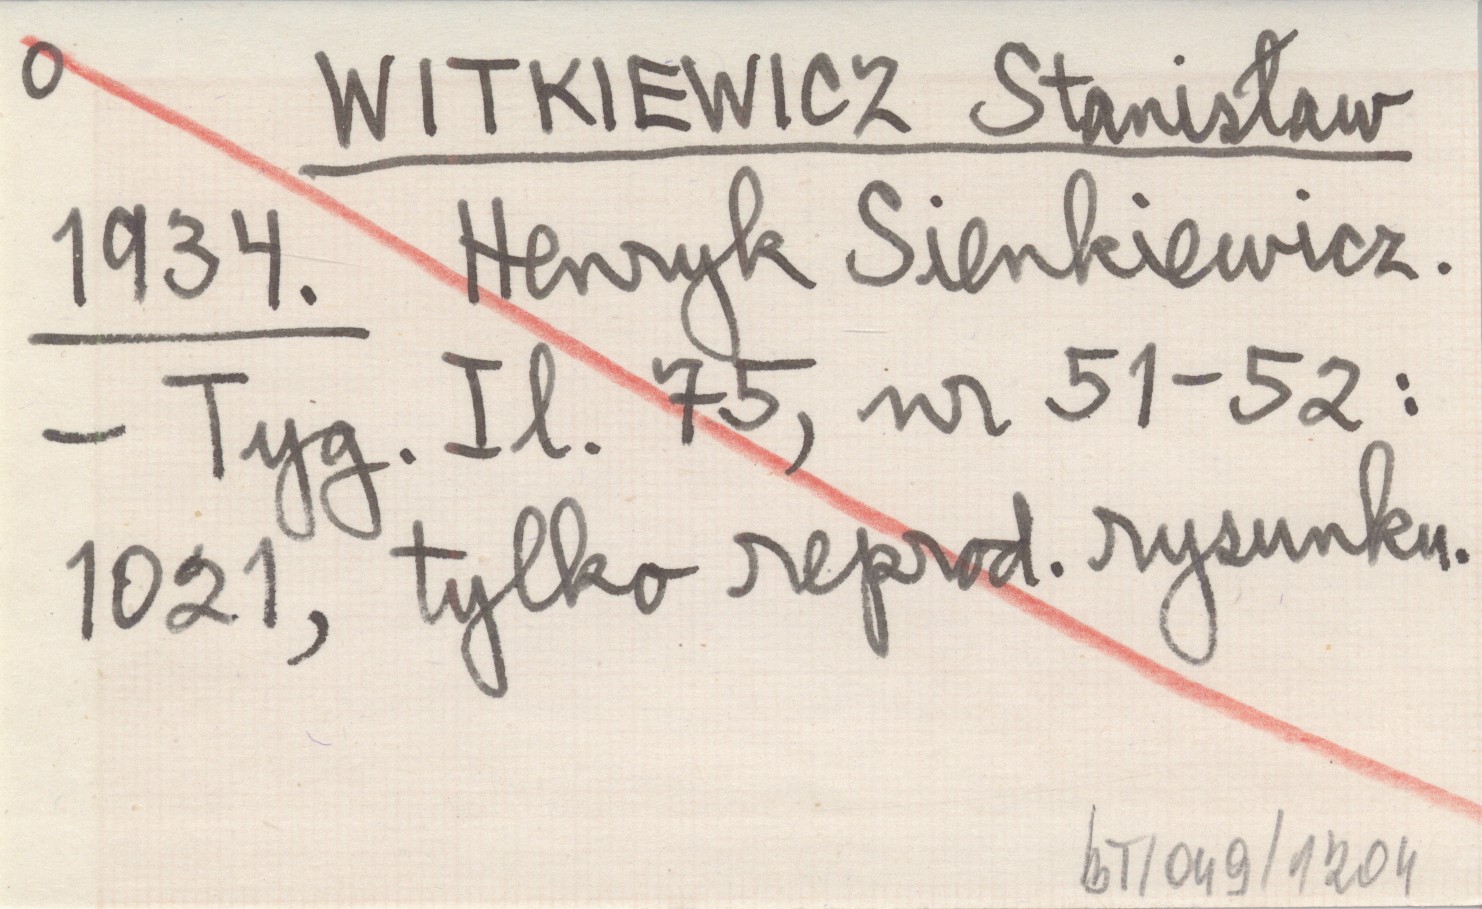 O WITKIEWICZ Stanisław
1934. Henryk Sienkiewicz.
- Tyg. Il. 75, nr 51-52:
1021, tylko reprod. rysunku.
bT/049/1204